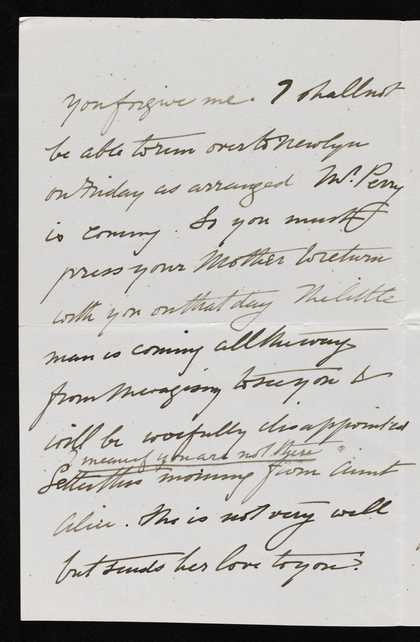 you forgive me. I shall not
be able to run over to Newlyn
on Friday as arranged Mr. Perry
is coming. So you must
press your Mother to return
with you on that day The little
man is coming all the way
from to see you &
will be woefully disappointed
mean if you are not there
Letter this morning from Aunt
Alice. She is not very well
but sends her love to you.